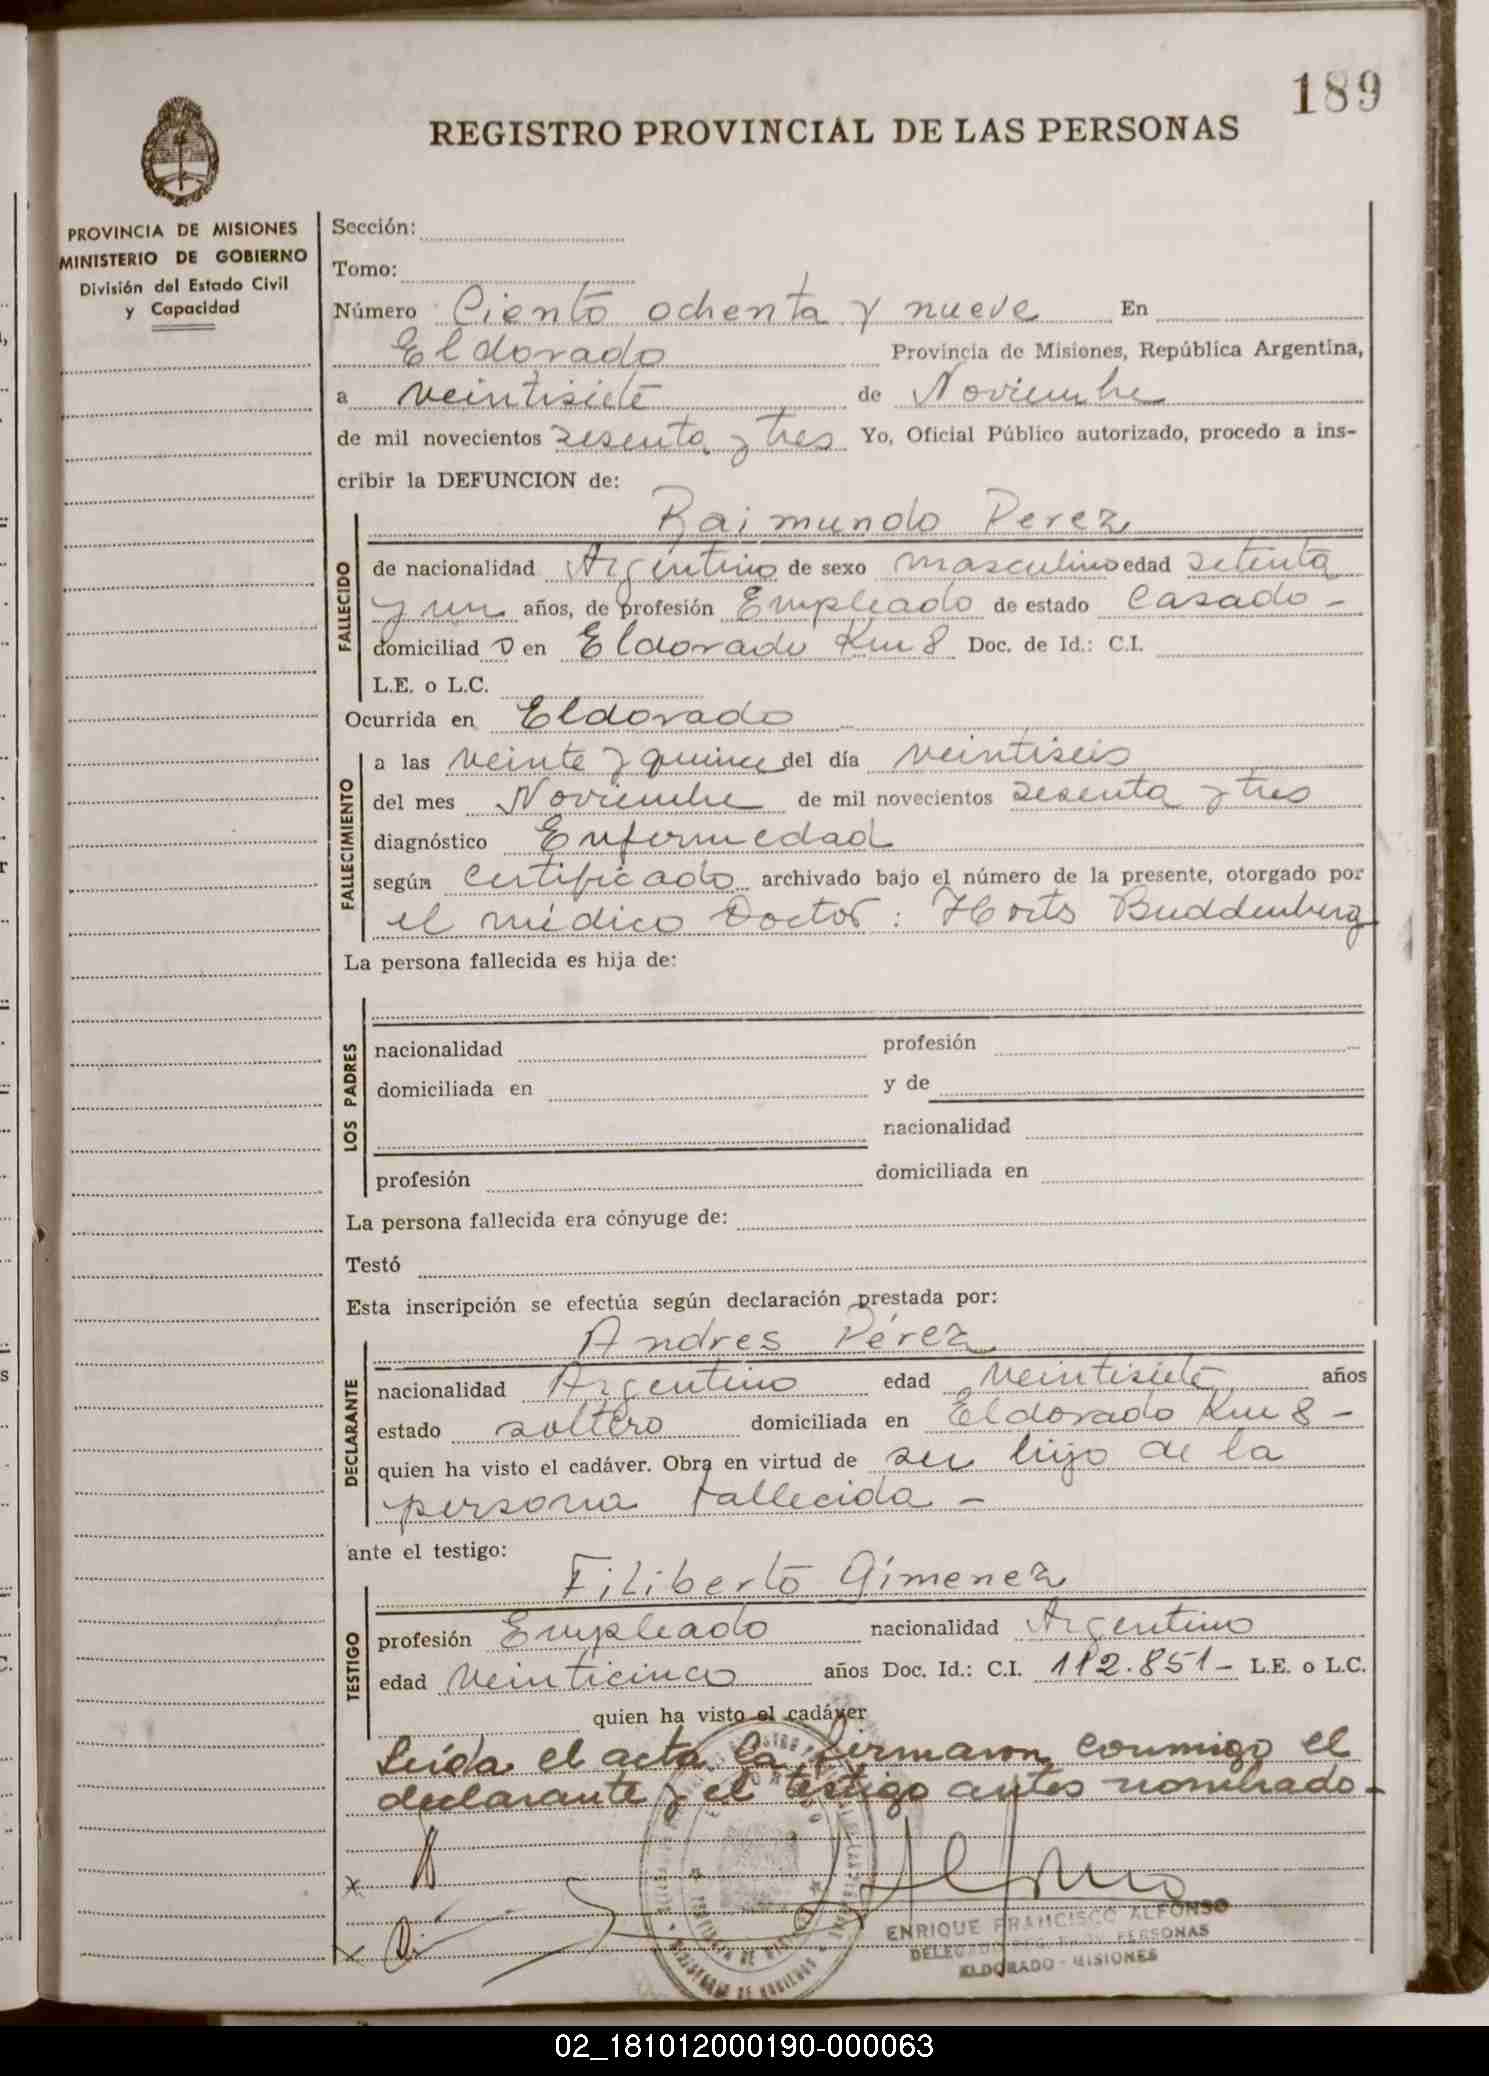 189
REGISTRO PROVINCIAL DE LAS PERSONAS
PROVINCIA DE MISIONES
MINISTERIO DE GOBIERNO
División del Estado Civil
y Capacidad
Sección:
Tomo:
Número Ciento ochenta y nueve En
Eldorado Provincia de Misiones, República Argentina,
a veintisiete de Noviembre
de mil novecientos sesenta y tres Yo, Oficial Público autorizado, procedo a ins-
cribir la DEFUNCION de:
Raimundo Perez
FALLECIDO
de nacionalidad Argentino de sexo masculino edad setenta
y un años, de profesión Empleado de estado Casado -
domiciliad o en Eldorado Km 8 Doc. de Id.: C.I.
L.E. o L.C.
Ocurrida en Eldorado
FALLECIMIENTO
a las veinte y quince del día veintiseis
del mes Noviembre de mil novecientos sesenta y tres
diagnóstico Enfermedad
según Certificado archivado bajo el número de la presente, otorgado por
el médico Doctor: Horts Buddenberg
La persona fallecida es hija de:
LOS PADRES
nacionalidad profesión
domiciliada en y de
nacionalidad
profesión domiciliada en
La persona fallecida era cónyuge de:
Testó
Esta inscripción se efectúa según declaración prestada por:
Andres Pérez
DECLARANTE
nacionalidad Argentino edad veintisiete años
estado soltero domiciliada en Eldorado Km 8 -
quien ha visto el cadáver. Obra en virtud de ser hijo de la
persona fallecida -
ante el testigo:
Filiberto Gimenez
TESTIGO
profesión Empleado nacionalidad Argentino
edad Veinticinco años Doc. Id.: C.I. 112.851- L.E. o L.C.
quien ha visto el cadáver
Leída el acta la firmaron conmigo el
declarante y el testigo antes nombrado-
x
x
ENRIQUE FRANCISCO ALFONSO
ELDORADO - MISIONES
02_181012000190-000063